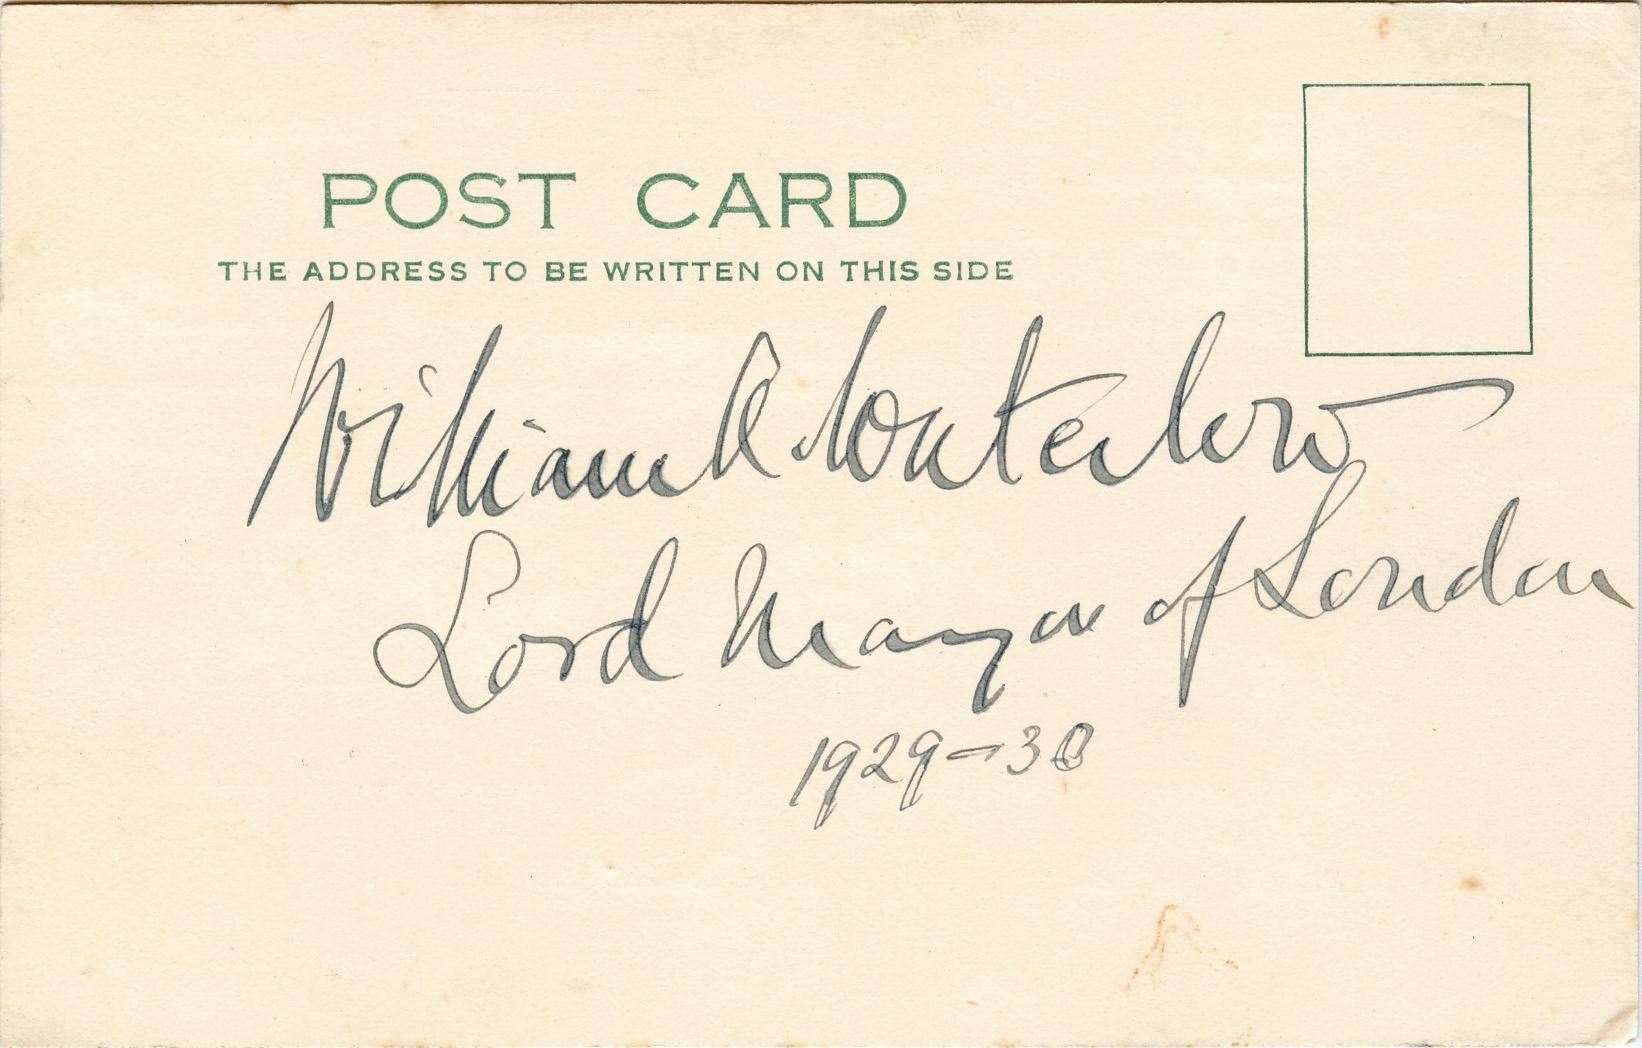 POST CARD
THE ADDRESS TO BE WRITTEN ON THIS SIDE
William A. Waterlow
Lord Mayor of London
1929-30